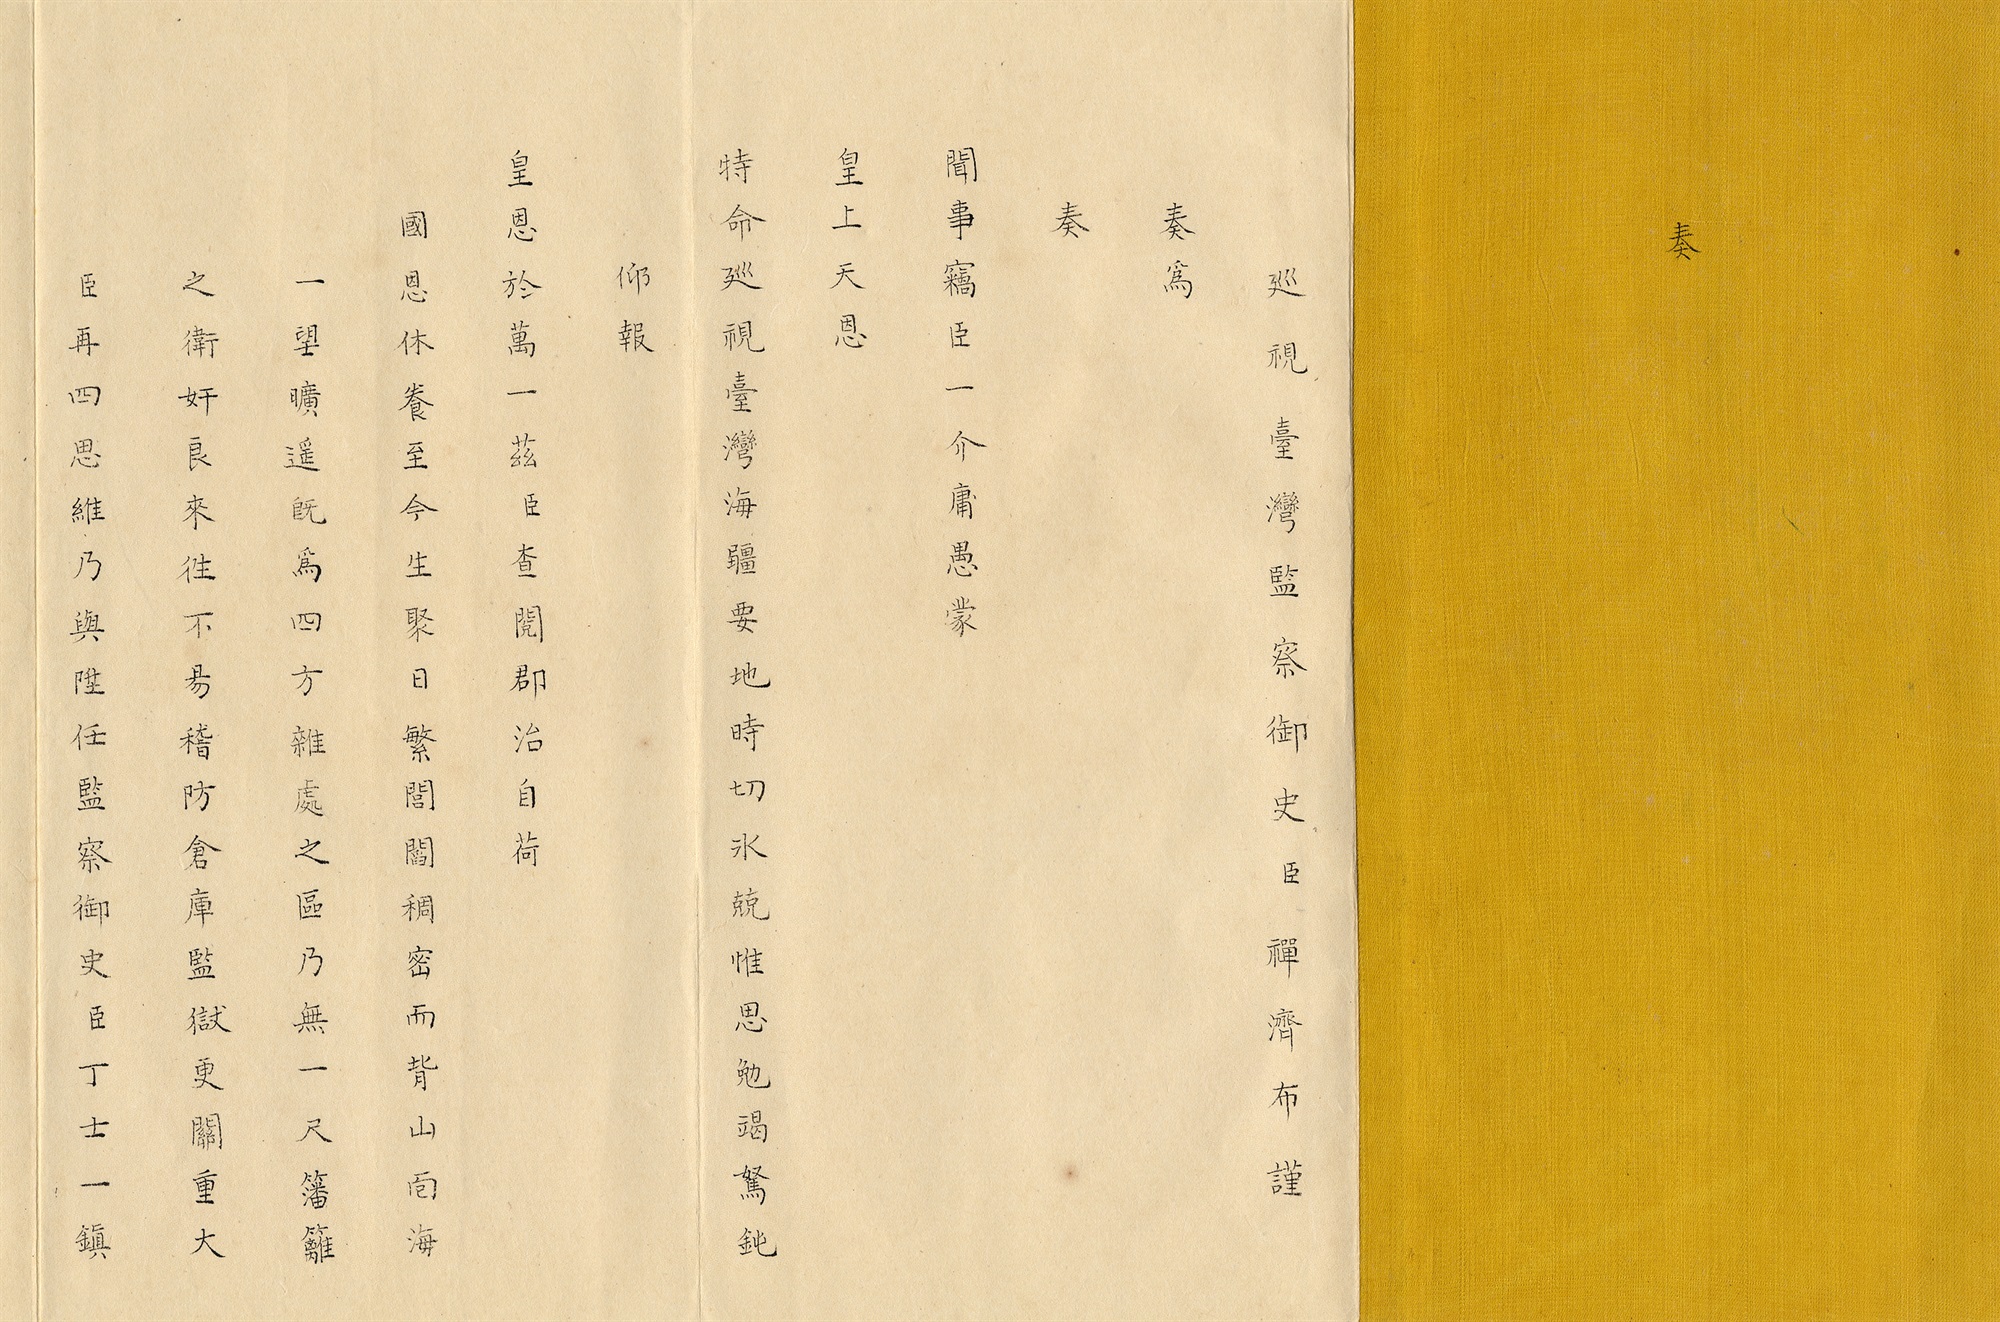 奏
廵視臺灣監察御史臣禪濟布謹
奏爲
奏
聞事竊臣一介庸愚蒙
皇上天恩
特命廵視臺灣海疆要地時切氷兢惟思勉竭駑鈍
仰報
皇恩於萬一茲臣查閱郡治自荷
國恩休養至今生聚日繁閭閻稠密而背山面海
一望曠遥既爲四方雜處之區乃無一尺籓籬
之衛奸良來徃不易稽防倉庫監獄更關重大
臣再四思維乃與陞任監察御史臣丁士一鎮